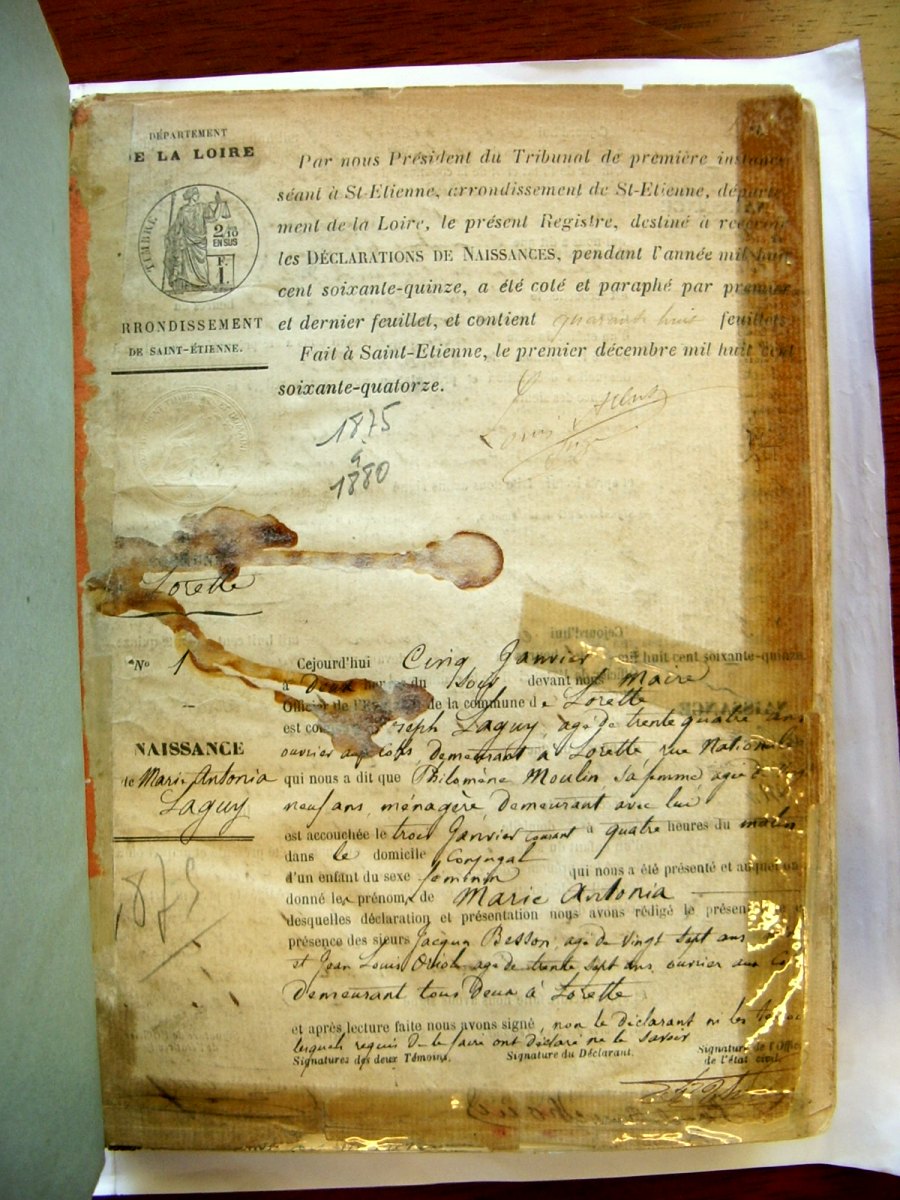 DÉPARTEMENT
E LA LOIRE
TIMBRE
2/10
EN SUS
F.
1.
RRONDISSEMENT
DE SAINT-ÉTIENNE.
Par nous Président du Tribunal de première instance
séant à St-Etienne, arrondissement de St-Etienne, départe-
ment de la Loire, le présent Registre, destiné à recevoir
les DÉCLARATIONS DE NAISSANCES, pendant l'année mil huit
cent soixante-quinze, a été coté et paraphé par premier
et dernier feuillet, et contient quarante huit feuillets
Fait à Saint-Etienne, le premier décembre mil huit cent
soixante-quatorze.
1875
à
1880
Lorette
N° 1
NAISSANCE
de Marie Antonia
Laguy
1875
Cejourd'hui Cinq Janvier mil huit cent soixante-quinze
à deux heures du soir devant nous Maire
Officier de l'É de la commune de Lorette
est com Joseph Laguy, agé de trente quatre ans
ouvrier aux demeurant à Lorette rue Nationale
qui nous a dit que Philomène Moulin sa femme agée de
neuf ans ménagère demeurant avec lui
est accouchée le trois Janvier courant à quatre heures du matin
dans le domicile conjugal
d'un enfant du sexe féminin qui nous a été présenté et auquel on
donné les prénoms de Marie Antonia
desquelles déclaration et présentation nous avons rédigé le présent
présence des sieurs Jacques Besson, agé de vingt sept ans
et Jean Louis agé de trente sept ans, ouvrier aux
demeurant tous deux à Lorette
et après lecture faite nous avons signé, non le déclarant ni les témoins
lesquels requis de le faire ont déclaré ne le savoir
Signatures des deux Témoins. Signature du Déclarant. Signature de l'Offic
de l'état civil.